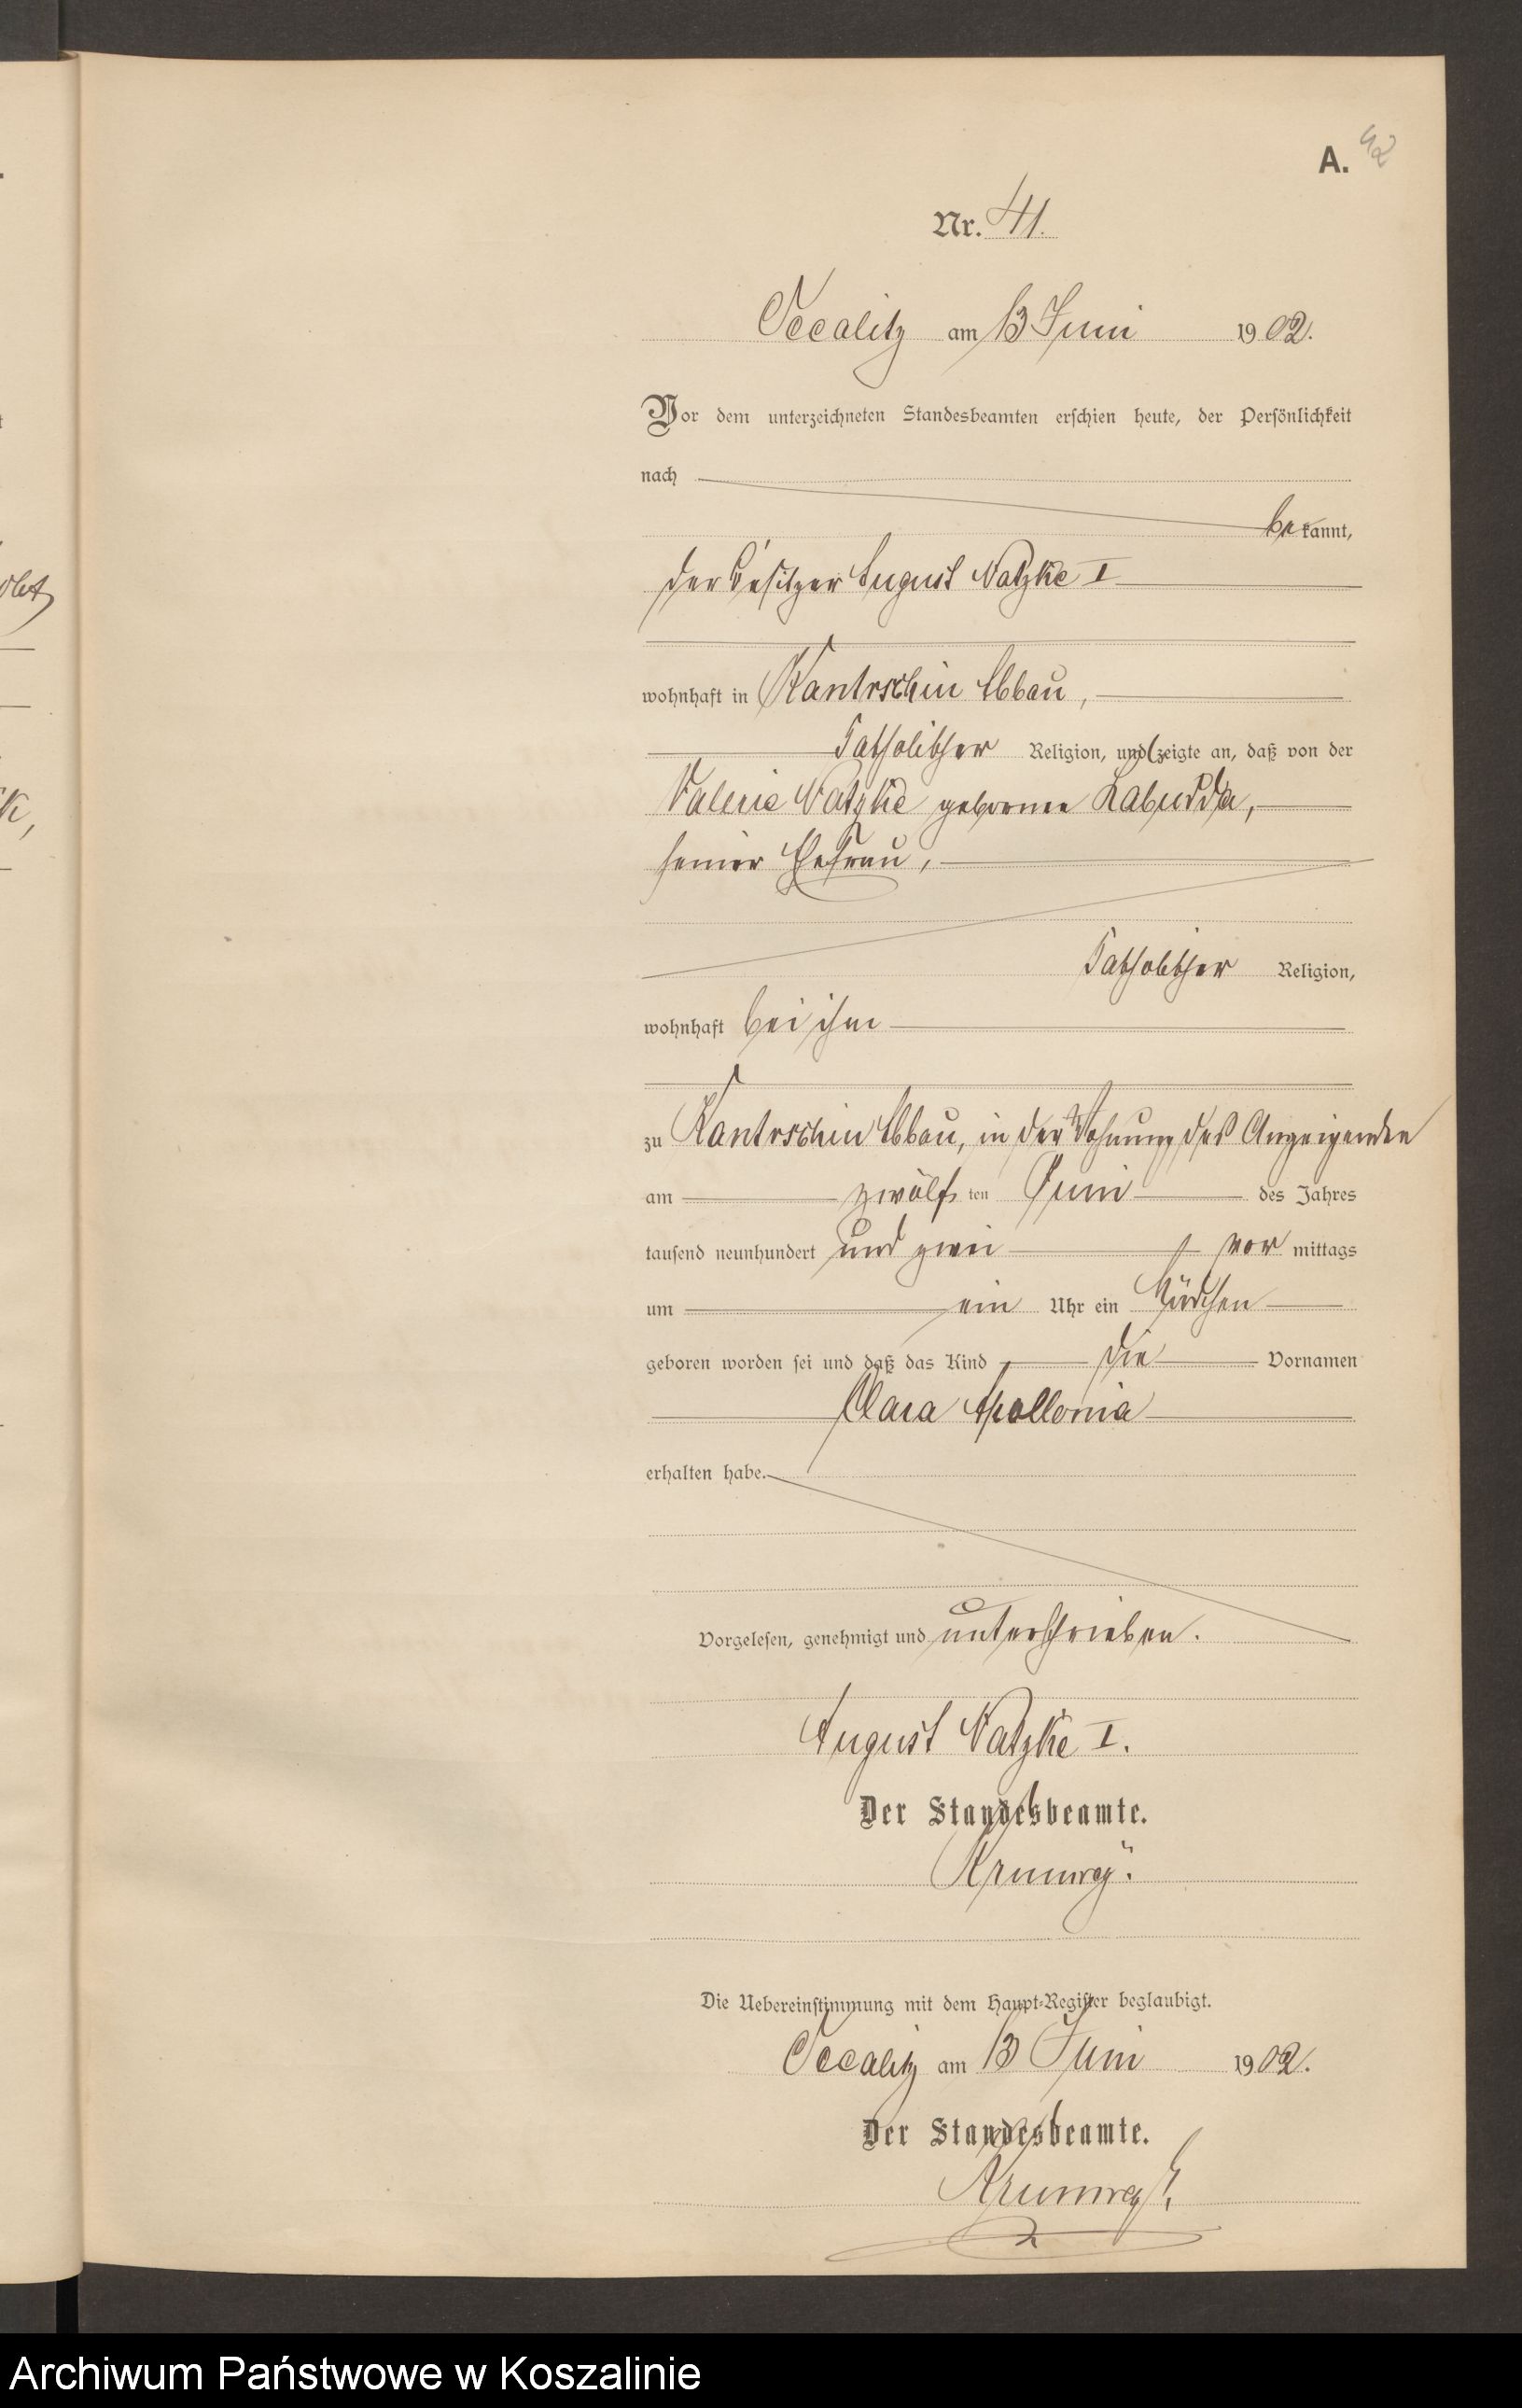 A. 42
Nr. 41.
Occalitz am 13 Juni 1902.
Vor dem unterzeichneten Standesbeamten erschien heute, der Persönlichkeit
nach
bekannt,
der Besitzer August Natzke I
wohnhaft in Kantrschin Abbau,
katholischer Religion, und zeigte an, daß von der
Valerie Natzke geborenen Labudda,
seiner Ehefrau,
katholischer Religion,
wohnhaft bei ihm
zu Kantrschin Abbau, in der Wohnung des Anzeigenden
am zwölf ten Juni des Jahres
tausend neunhundert und zwei vor mittags
um ein Uhr ein Mädchen
geboren worden sei und daß das Kind die Vornamen
Clara Apollonia
erhalten habe.
Vorgelesen, genehmigt und unterschrieben.
August Natzke I.
Der Standesbeamte.
Die Uebereinstimmung mit dem Haupt-Register beglaubigt.
Occalitz am 13 Juni 1902.
Der Standesbeamte.
Archiwum Państwowe w Koszalinie